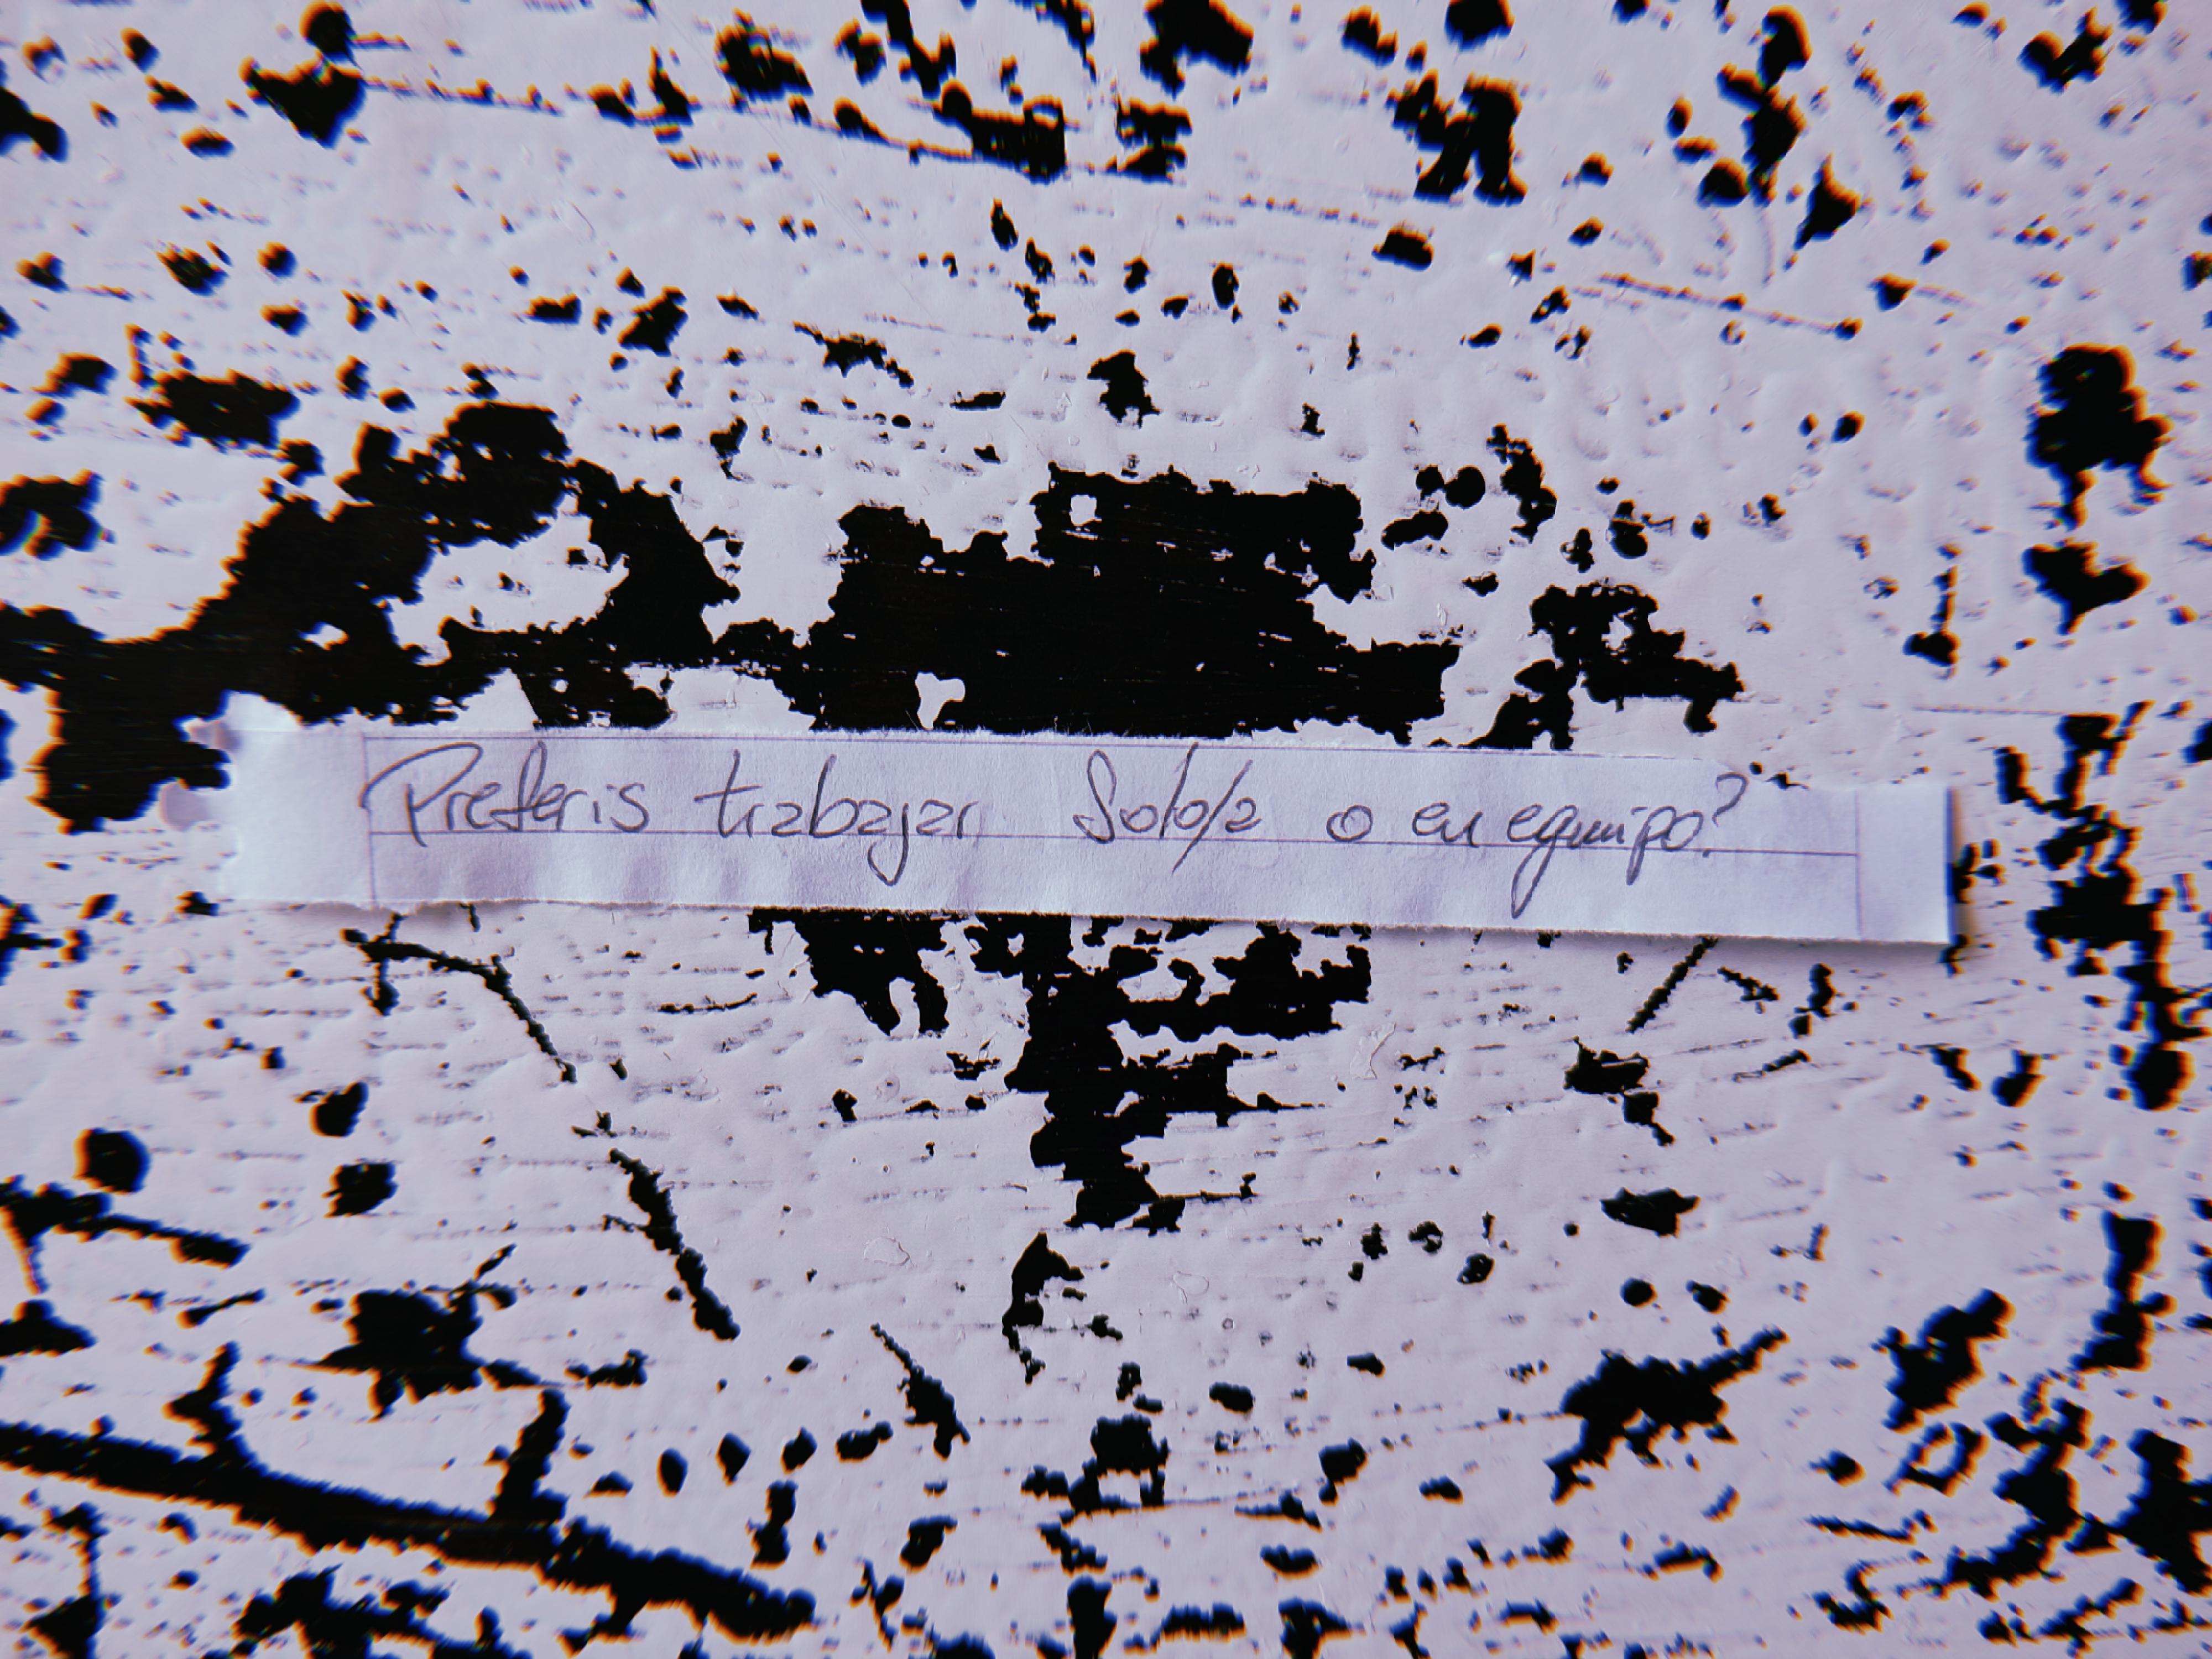 Preferis trabajar Solo/a o en equipo?